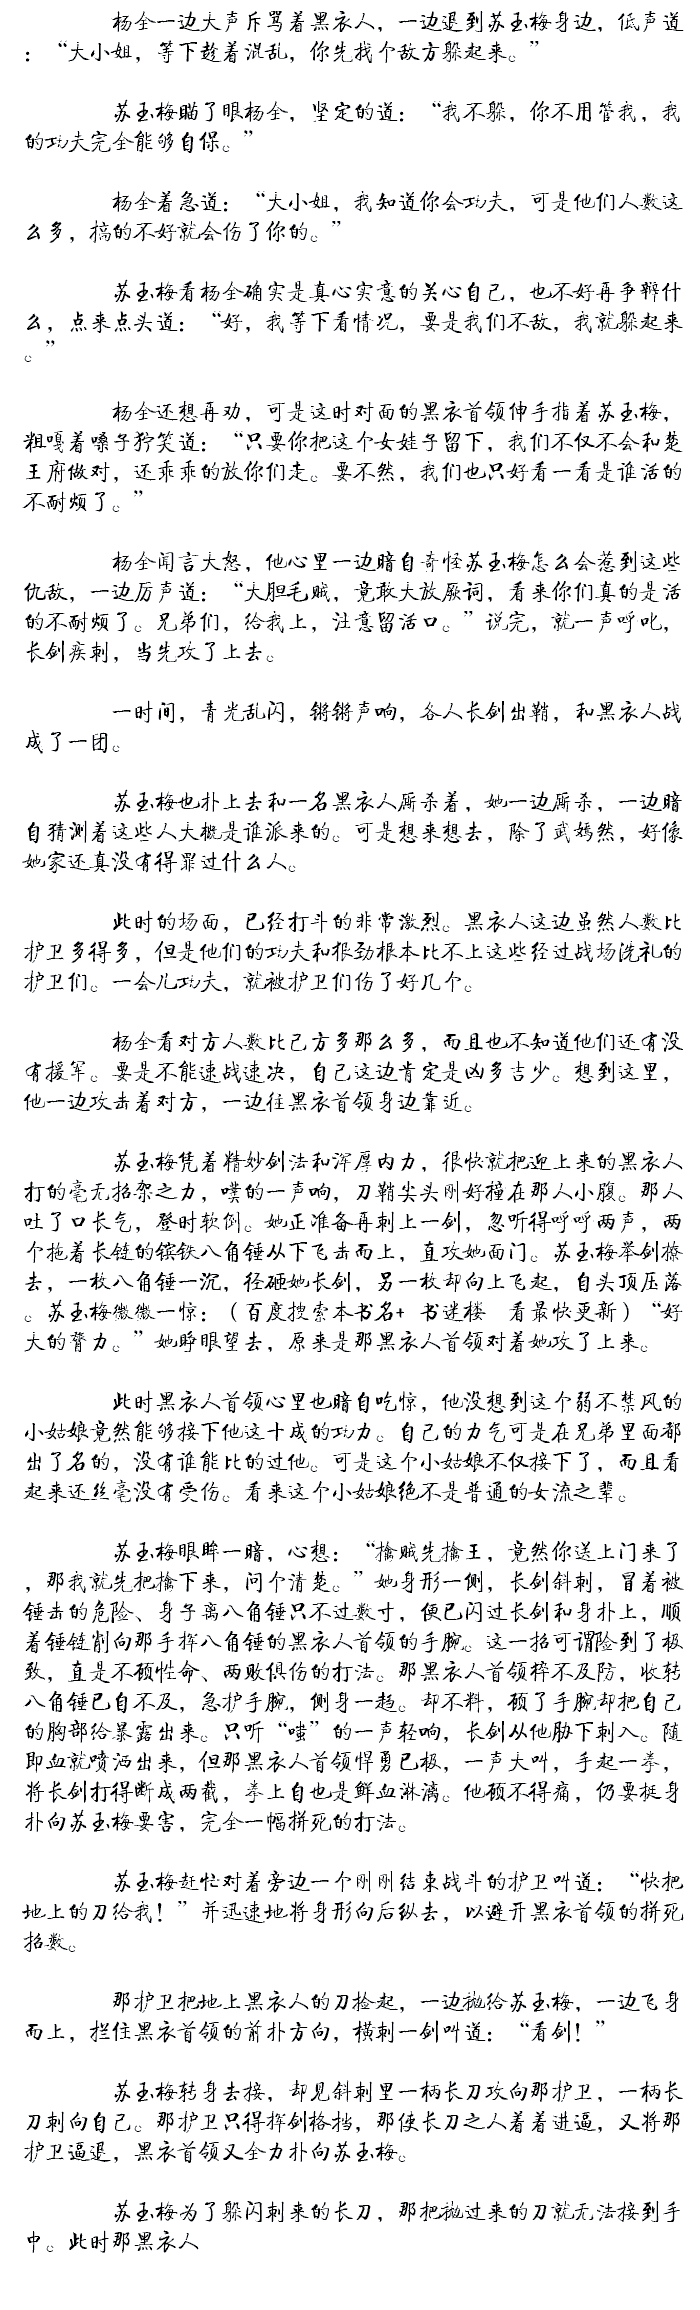 杨全一边大声斥骂着黑衣人，一边退到苏玉梅身边，低声道
：“大小姐，等下趁着混乱，你先找个敌方躲起来。”
苏玉梅瞄了眼杨全，坚定的道：“我不躲，你不用管我，我
的功夫完全能够自保。”
杨全着急道：“大小姐，我知道你会功夫，可是他们人数这
么多，搞的不好就会伤了你的。”
苏玉梅看杨全确实是真心实意的关心自己，也不好再争辩什
么，点来点头道：“好，我等下看情况，要是我们不敌，我就躲起来
。”
杨全还想再劝，可是这时对面的黑衣首领伸手指着苏玉梅，
粗嘎着嗓子狞笑道：“只要你把这个女娃子留下，我们不仅不会和楚
王府做对，还乖乖的放你们走。要不然，我们也只好看一看是谁活的
不耐烦了。”
杨全闻言大怒，他心里一边暗自奇怪苏玉梅怎么会惹到这些
仇敌，一边厉声道：“大胆毛贼，竟敢大放厥词，看来你们真的是活
的不耐烦了。兄弟们，给我上，注意留活口。”说完，就一声呼叱，
长剑疾刺，当先攻了上去。
一时间，青光乱闪，锵锵声响，各人长剑出鞘，和黑衣人战
成了一团。
苏玉梅也扑上去和一名黑衣人厮杀着，她一边厮杀，一边暗
自猜测着这些人大概是谁派来的。可是想来想去，除了武嫣然，好像
她家还真没有得罪过什么人。
此时的场面，已经打斗的非常激烈。黑衣人这边虽然人数比
护卫多得多，但是他们的功夫和狠劲根本比不上这些经过战场洗礼的
护卫们。一会儿功夫，就被护卫们伤了好几个。
杨全看对方人数比己方多那么多，而且也不知道他们还有没
有援军。要是不能速战速决，自己这边肯定是凶多吉少。想到这里，
他一边攻击着对方，一边往黑衣首领身边靠近。
苏玉梅凭着精妙剑法和浑厚内力，很快就把迎上来的黑衣人
打的毫无招架之力，噗的一声响，刀鞘尖头刚好撞在那人小腹。那人
吐了口长气，登时软倒。她正准备再刺上一剑，忽听得呼呼两声，两
个拖着长链的镔铁八角锤从下飞击而上，直攻她面门。苏玉梅举剑撩
去，一枚八角锤一沉，径砸她长剑，另一枚却向上飞起，自头顶压落
。苏玉梅微微一惊：（百度搜索本书名+ 书迷楼  看最快更新）“好
大的膂力。”她睁眼望去，原来是那黑衣人首领对着她攻了上来。
此时黑衣人首领心里也暗自吃惊，他没想到这个弱不禁风的
小姑娘竟然能够接下他这十成的功力。自己的力气可是在兄弟里面都
出了名的，没有谁能比的过他。可是这个小姑娘不仅接下了，而且看
起来还丝毫没有受伤。看来这个小姑娘绝不是普通的女流之辈。
苏玉梅眼眸一暗，心想：“擒贼先擒王，竟然你送上门来了
，那我就先把擒下来，问个清楚。”她身形一侧，长剑斜刺，冒着被
锤击的危险、身子离八角锤只不过数寸，便已闪过长剑和身扑上，顺
着锤链削向那手挥八角锤的黑衣人首领的手腕。这一招可谓险到了极
致，直是不顾性命、两败俱伤的打法。那黑衣人首领猝不及防，收转
八角锤已自不及，急护手腕，侧身一趋。却不料，顾了手腕却把自己
的胸部给暴露出来。只听“嗤”的一声轻响，长剑从他胁下刺入。随
即血就喷洒出来，但那黑衣人首领悍勇已极，一声大叫，手起一拳，
将长剑打得断成两截，拳上自也是鲜血淋漓。他顾不得痛，仍要挺身
扑向苏玉梅要害，完全一幅拼死的打法。
苏玉梅赶忙对着旁边一个刚刚结束战斗的护卫叫道：“快把
地上的刀给我！”并迅速地将身形向后纵去，以避开黑衣首领的拼死
招数。
那护卫把地上黑衣人的刀捡起，一边抛给苏玉梅，一边飞身
而上，拦住黑衣首领的前扑方向，横刺一剑叫道：“看剑！”
苏玉梅转身去接，却见斜刺里一柄长刀攻向那护卫，一柄长
刀刺向自己。那护卫只得挥剑格挡，那使长刀之人着着进逼，又将那
护卫逼退，黑衣首领又全力扑向苏玉梅。
苏玉梅为了躲闪刺来的长刀，那把抛过来的刀就无法接到手
中。此时那黑衣人